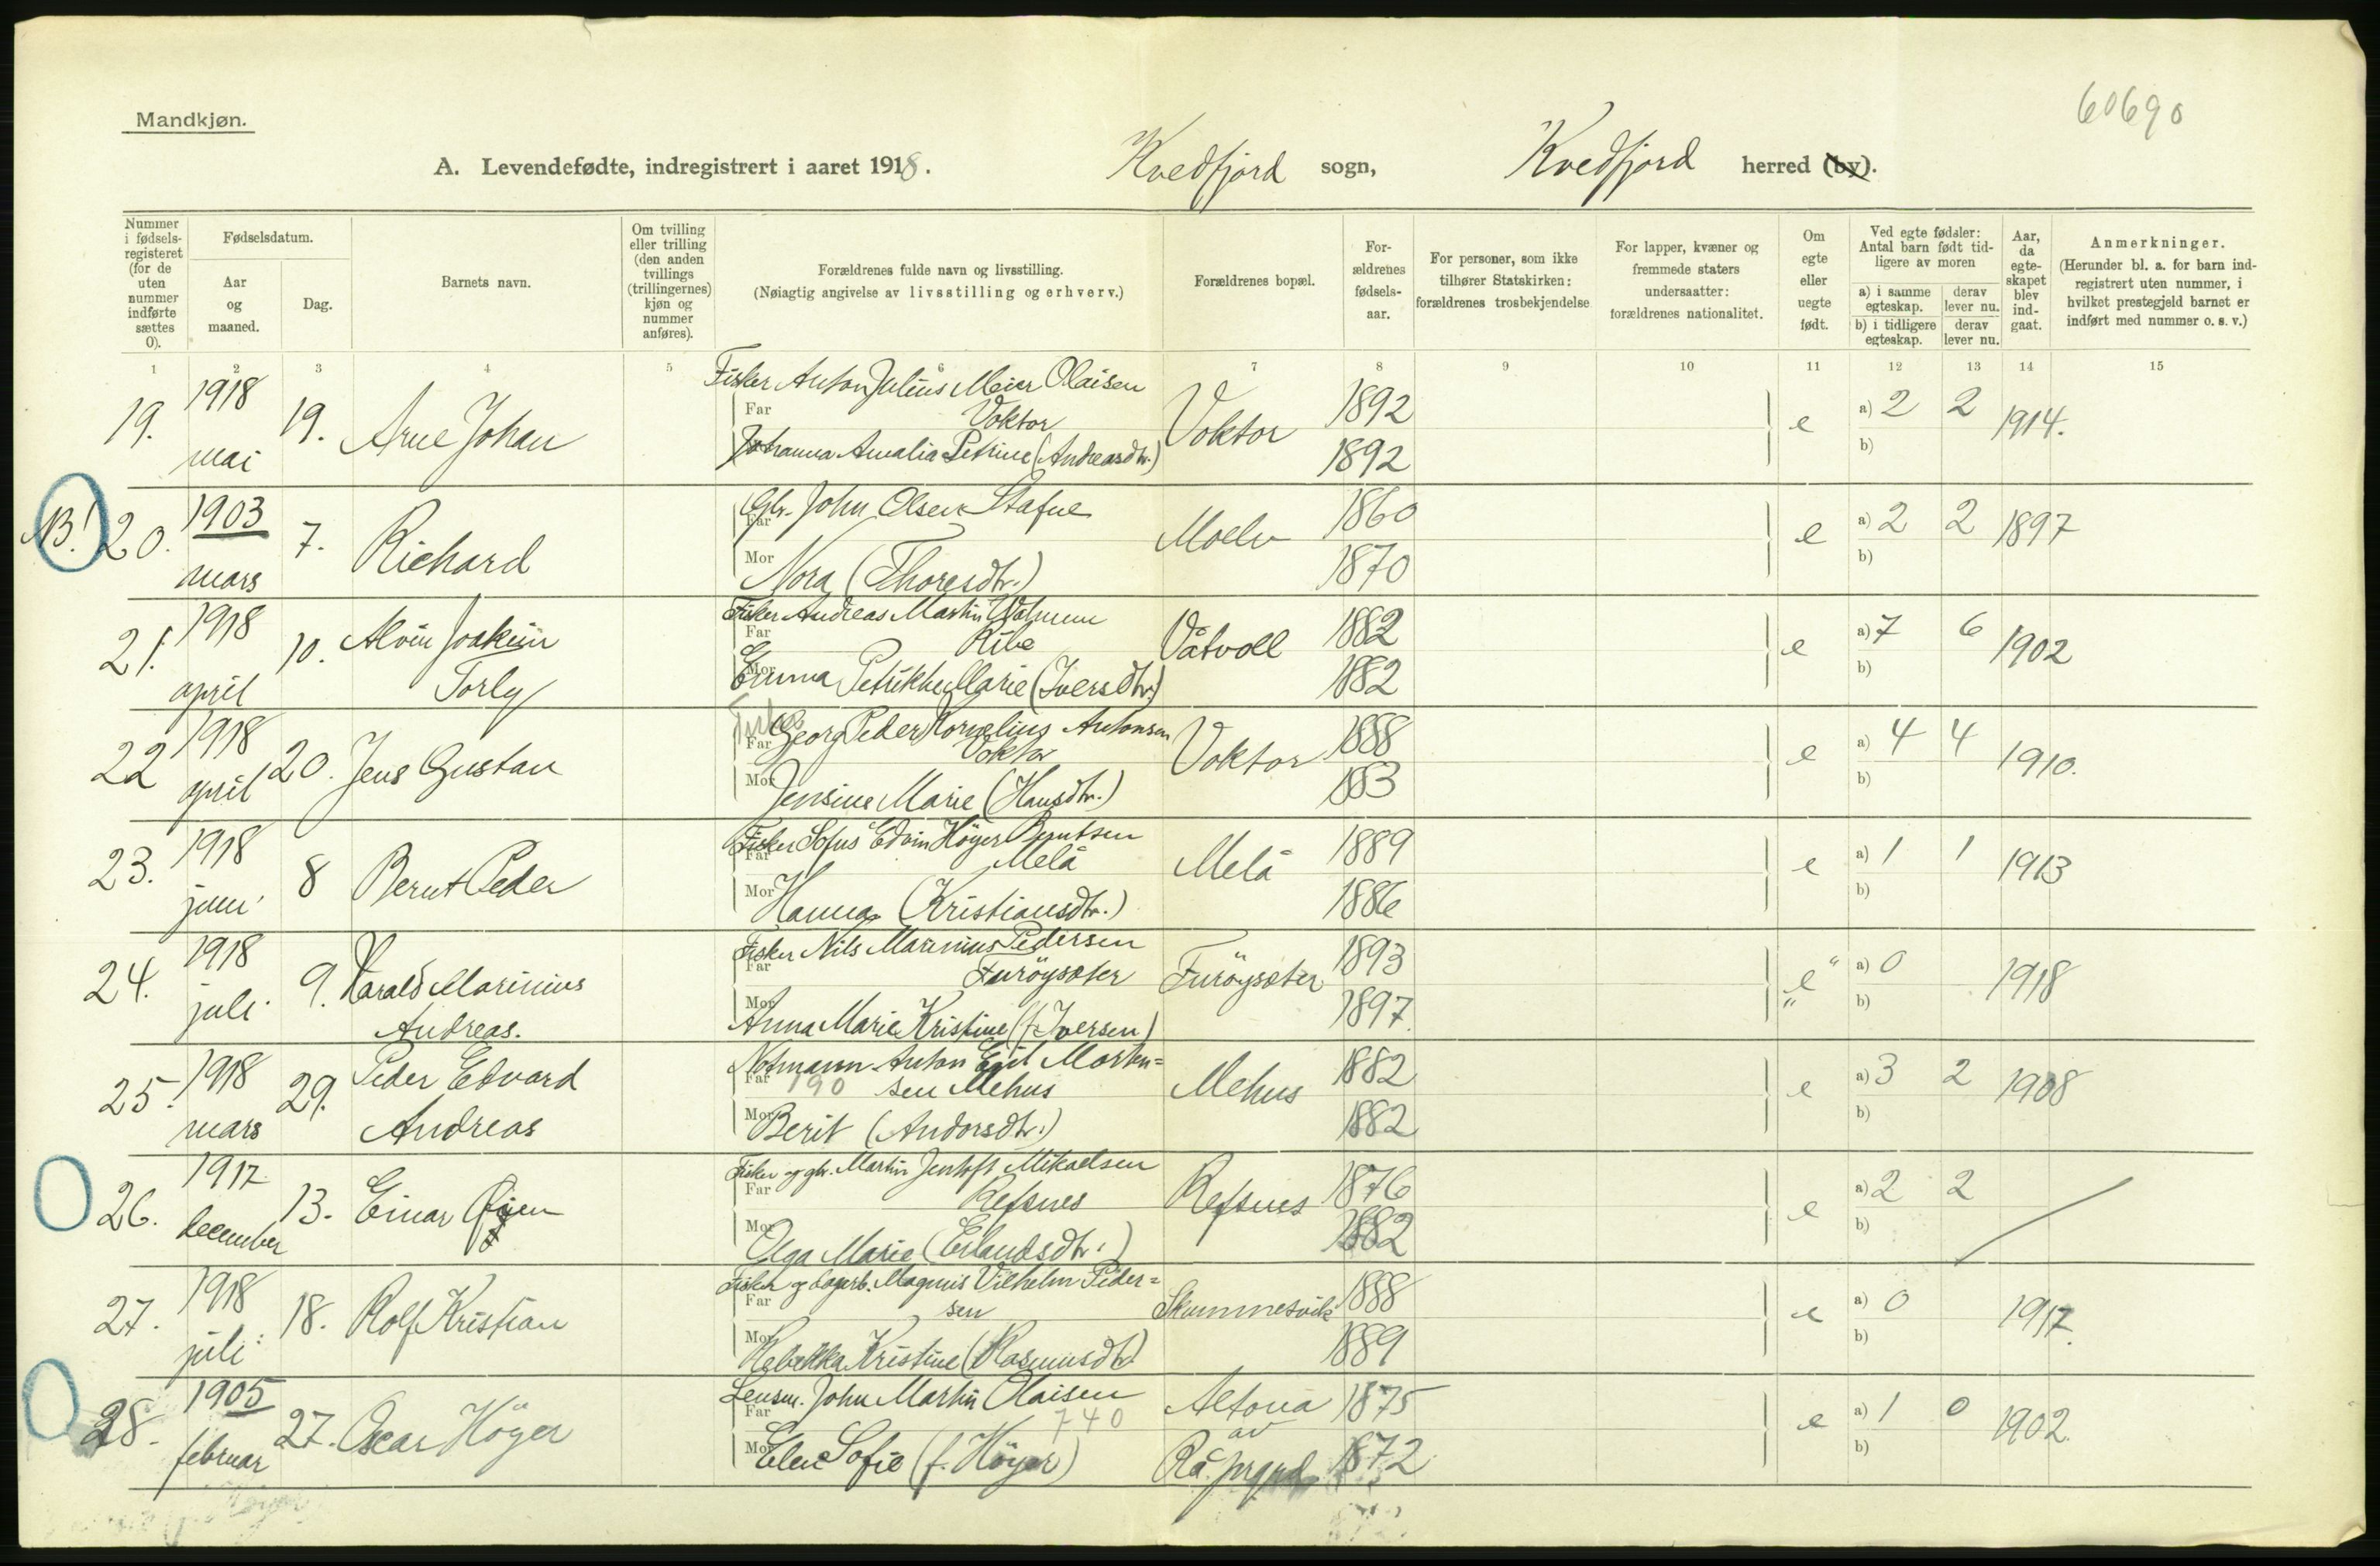 60690
Mandkjøn.
A. Levendefødte, indregistrert i aaret 1918. Kvedfjord sogn, Kvedfjord herred (by).
Nummer i fødsels-registeret (for de uten nummer indførte sættes 0).
Fødselsdatum.
Aar og maaned.
Dag.
Barnets navn.
Om tvilling eller trilling (den anden tvillings (trillingernes) kjøn og nummer anføres).
Forældrenes fulde navn og livsstilling.
(Nøiagtig angivelse av livsstilling og erhverv.)
Forældrenes bopæl.
For-ældrenes fødsels-aar.
For personer, som ikke tilhører Statskirken: forældrenes trosbekjendelse
For lapper, kvæner og fremmede staters undersaatter: forældrenes nationalitet.
Om egte eller uegte født.
Ved egte fødsler: Antal barn født tid-ligere av moren
a) i samme egteskap.
derav lever nu.
b) i tidligere egteskap.
derav lever nu.
Aar, da egte-skapet blev ind-gaat.
Anmerkninger.
(Herunder bl. a. for barn ind-registrert uten nummer, i hvilket prestegjeld barnet er indført med nummer o. s. v.)
1 2 3 4 5 6 7 8 9 10 11 12 13 14 15
19. 1918 mai 19. Arne Johan
Fisker Anton Julius Meier Olaisen
Far Voktor
Johanna Amalia Petrine (Andreasdtr.)
Voktor 1892 1892 e a) 2 2 b) 1914.
NB! 20. 1903 mars 7. Richard
Far Gbr. John Olsen Stafne
Mor Nora (Thoresdtr.)
Moelv 1860 1870 e a) 2 2 b) 1897
21. 1918 april 10. Alvin Joakim Torly
Fisker Andreas Martin
Far Ribe
Mor Emma Petrikke Marie (Iversdtr.)
Våtvoll 1882 1882 e a) 7 6 b) 1902
22 1918 april 20. Jens Gustav
Fisker
Far Georg Peder Kornelius Antonsen
Voktor
Mor Jensine Marie (Hansdtr.)
Voktor 1888 1883 e a) 4 4 b) 1910.
23. 1918 juni 8 Bernt Peder
Fisker Sofus Edvin Höyer Berntsen
Far Melå
Mor Hanna (Kristiansdtr.)
Melå 1889 1886 e a) 1 1 b) 1913
24. 1918 juli 9. Harald Marinius Andreas.
Fisker Nils Marinius Pedersen
Far Furöysæter
Mor Anna Marie Kristine (f. Iversen)
Furöysæter 1893 1897. "e" a) 0 b) 1918
25. 1918 mars 29. Peder Edvard Andreas
Notmann Anton Egil Morten=
Far 190 sen Mehus
Mor Berit (Andorsdtr.)
Mehus 1882 1882 e a) 3 2 b) 1908
26. 1917 december 13. Einar
Fisker og gbr. Martin Jentoft Mikaelsen
Far Refsnes
Mor Olga Marie (Erlandsdtr.)
Refsnes 1876 1882 e a) 2 2 b)
27. 1918 juli 18. Rolf Kristian
Fisker og dagarb. Magnus Vilhelm Peder=
Far sen
Mor Rebekka Kristine (Rasmusdtr.)
Skummesvik 1888 1889 e a) 0 b) 1917.
28. 1905 februar 27. Oscar Höyer
Lensm. John Martin Olaisen
Far 740
Mor Elen Sofie (f. Höyer)
Altona av 1875 1872 e a) 1 0 b) 1902.